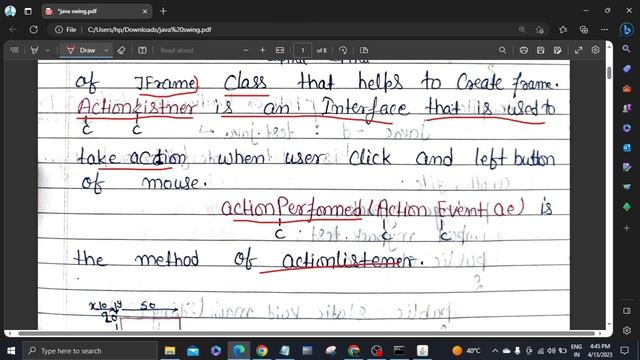 *java swing.pdf
File
C:/Users/hp/Downloads/java%20swing.pdf
Draw
Read aloud
1
of 8
of JFrame) class that helps to Create frame.
ActionListner is an Interface that is used to
C C
take action when user click and left button
of mouse.
actionPerformed (Action Event ae) is
C C C
the method of actionlistener.
x10 y 50
20
Type here to search
40°C
ENG
IN
4:45 PM
4/13/2023